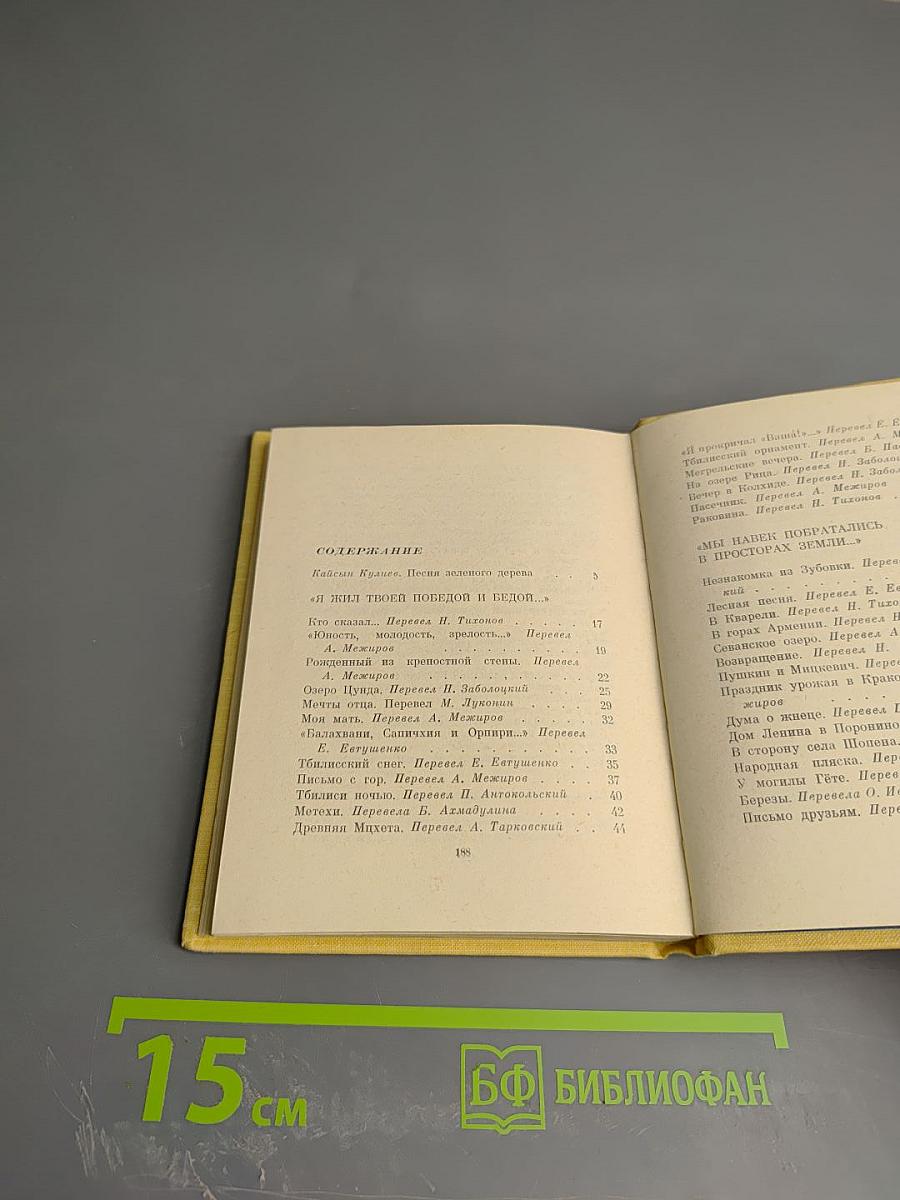 СОДЕРЖАНИЕ
Кайсын Кулиев. Песня зеленого дерева . . 5
«Я ЖИЛ ТВОЕЙ ПОБЕДОЙ И БЕДОЙ...»
Кто сказал... Перевел Н. Тихонов . . . . . 17
«Юность, молодость, зрелость...» Перевел
А. Межиров . . . . . . . . . . 19
Рожденный из крепостной стены. Перевел
А. Межиров . . . . . . . . . . 22
Озеро Цунда. Перевел Н. Заболоцкий . . . 25
Мечты отца. Перевел М. Луконин . . . . 29
Моя мать. Перевел А. Межиров . . . . . 32
«Балахвани, Сапичхия и Орпири...» Перевел
Е. Евтушенко . . . . . . . . . . 33
Тбилисский снег. Перевел Е. Евтушенко . . 35
Письмо с гор. Перевел А. Межиров . . . . 37
Тбилиси ночью. Перевел П. Антокольский . 40
Метехи. Перевела Б. Ахмадулина . . . . 42
Древняя Мцхета. Перевел А. Тарковский . . 44
188
«Я прокричал «Ваша!»...» Перевел Е.
Тбилисский орнамент. Перевел А. М
Мегрельские вечера. Перевел Б. Пас
На озере Рица. Перевел Н. Заболо
Вечер в Колхиде. Перевел Н. Забо
Пасечник. Перевел А. Межиров
Раковина. Перевел Н. Тихонов .
«МЫ НАВЕК ПОБРАТАЛИСЬ
В ПРОСТОРАХ ЗЕМЛИ...»
Незнакомка из Зубовки. Перев
кий . . . . . . . . .
Лесная песня. Перевел Е. Ев
В Кварели. Перевел Н. Тихо
В горах Армении. Перевел Н
Севанское озеро. Перевел А
Возвращение. Перевел Н.
Пушкин и Мицкевич. Перев
Праздник урожая в Крако
жиров . . . .
Дума о жнеце. Перевел
Дом Ленина в Поронино
В сторону села Шопена.
Народная пляска. Пере
У могилы Гёте. Переве
Березы. Перевела О. Ив
Письмо друзьям. Пере
15 см
БФ БИБЛИОФАН